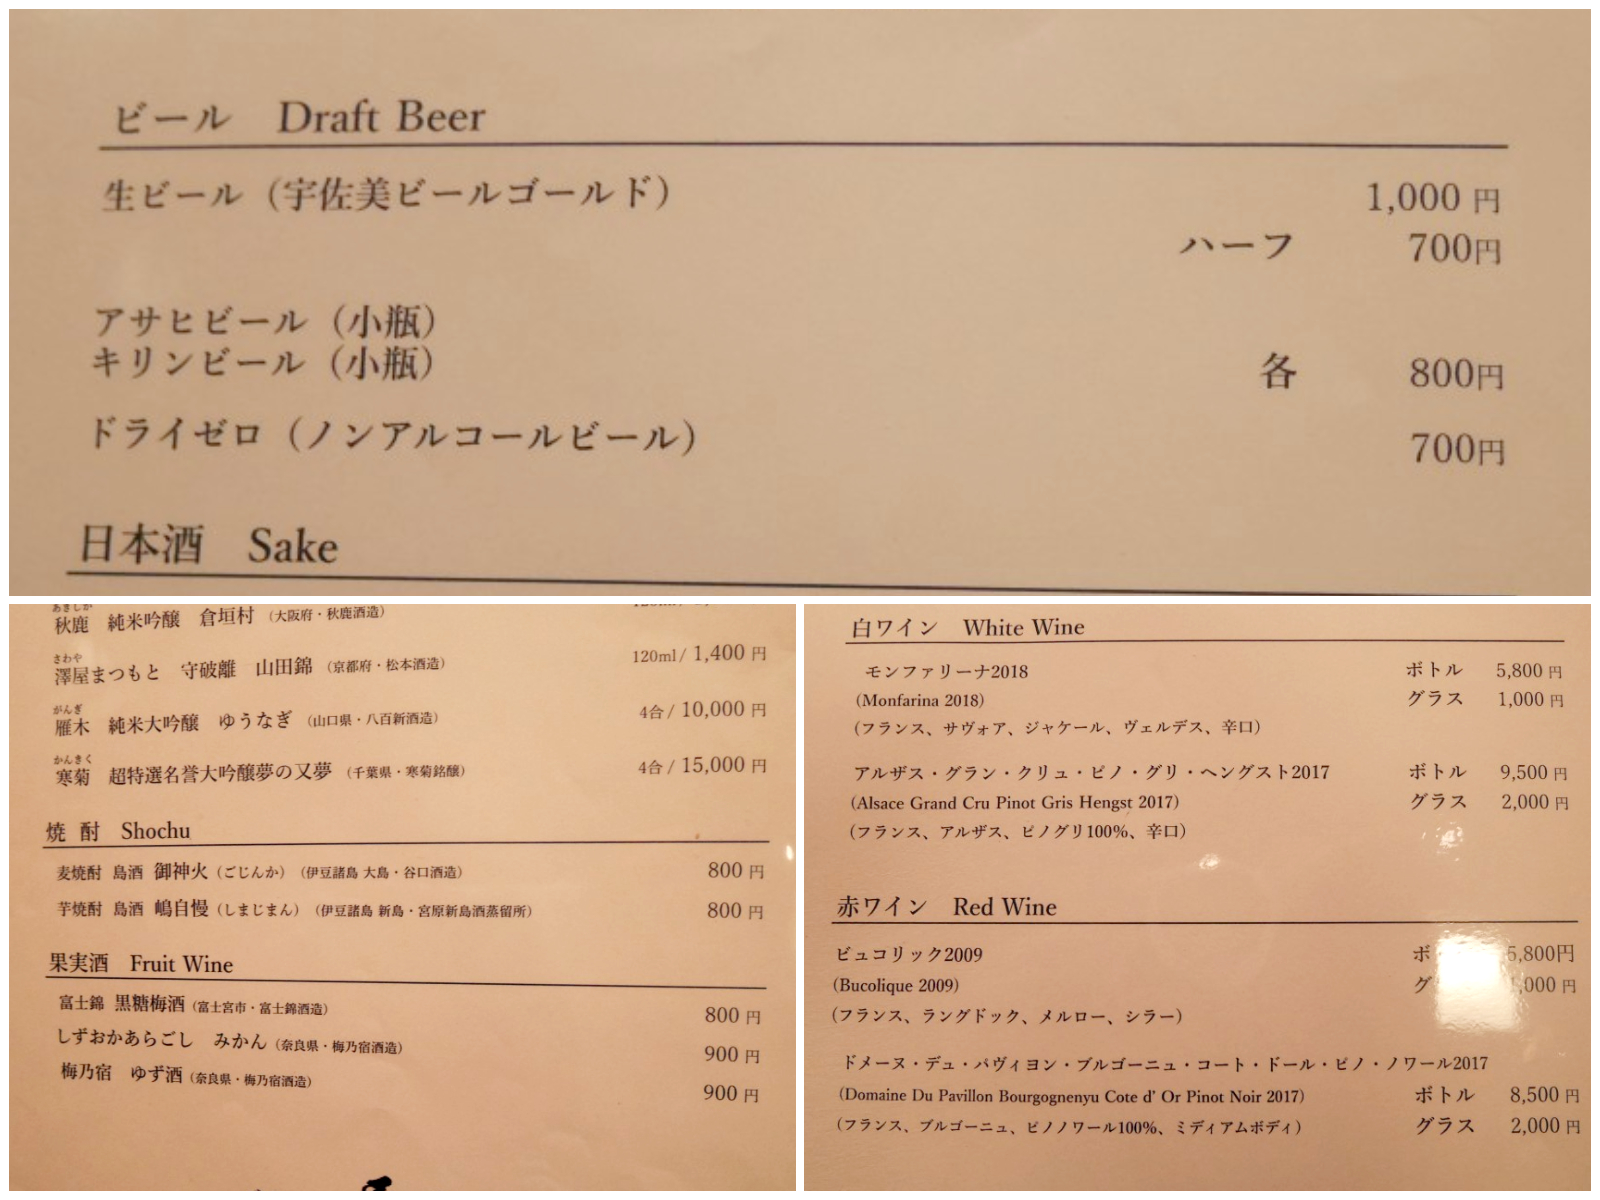 ビール Draft Beer
生ビール（宇佐美ビールゴールド） 1,000 円
ハーフ 700円
アサヒビール（小瓶）
キリンビール（小瓶） 各 800円
ドライゼロ（ノンアルコールビール） 700円
日本酒 Sake
あきしか
秋鹿 純米吟醸 倉垣村 （大阪府・秋鹿酒造）
さわや
澤屋まつもと 守破離 山田錦 （京都府・松本酒造） 120ml / 1,400 円
がんぎ
雁木 純米大吟醸 ゆうなぎ （山口県・八百新酒造） 4合 / 10,000 円
かんきく
寒菊 超特選名誉大吟醸夢の又夢 （千葉県・寒菊銘醸） 4合 / 15,000 円
焼 酎 Shochu
麦焼酎 島酒 御神火（ごじんか）（伊豆諸島 大島・谷口酒造） 800 円
芋焼酎 島酒 嶋自慢（しまじまん）（伊豆諸島 新島・宮原新島酒蒸留所） 800 円
果実酒 Fruit Wine
富士錦 黒糖梅酒（富士宮市・富士錦酒造） 800 円
しずおかあらごし みかん（奈良県・梅乃宿酒造） 900 円
梅乃宿 ゆず酒（奈良県・梅乃宿酒造） 900 円
白ワイン White Wine
モンファリーナ2018 ボトル 5,800 円
(Monfarina 2018) グラス 1,000 円
（フランス、サヴォァ、ジャケール、ヴェルデス、辛口）
アルザス・グラン・クリュ・ピノ・グリ・ヘングスト2017 ボトル 9,500 円
(Alsace Grand Cru Pinot Gris Hengst 2017) グラス 2,000 円
（フランス、アルザス、ピノグリ100%、辛口）
赤ワイン Red Wine
ビュコリック2009 ボ 5,800円
(Bucolique 2009) グ ,000 円
（フランス、ラングドック、メルロー、シラー）
ドメーヌ・デュ・パヴィヨン・ブルゴーニュ・コート・ドール・ピノ・ノワール2017
(Domaine Du Pavillon Bourgognenyu Cote d' Or Pinot Noir 2017) ボトル 8,500 円
（フランス、ブルゴーニュ、ピノノワール100%、ミディアムボディ） グラス 2,000 円